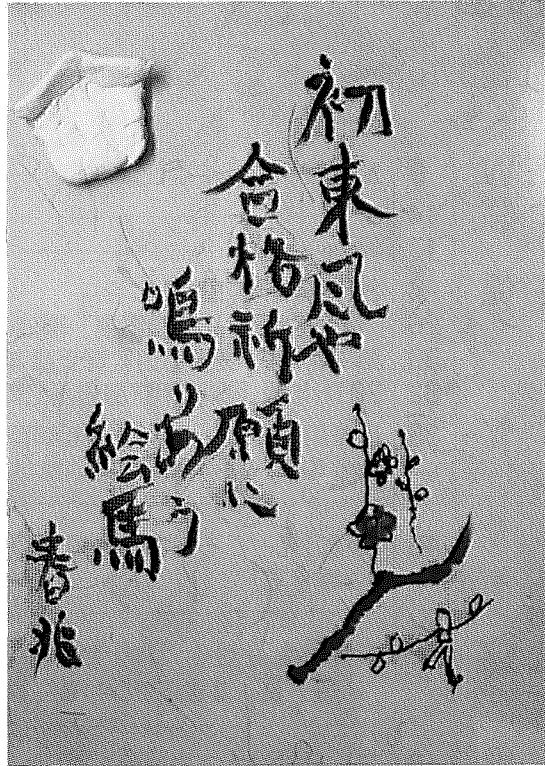 初東風や
合格祈願に
鳴りあう
絵馬
春兆